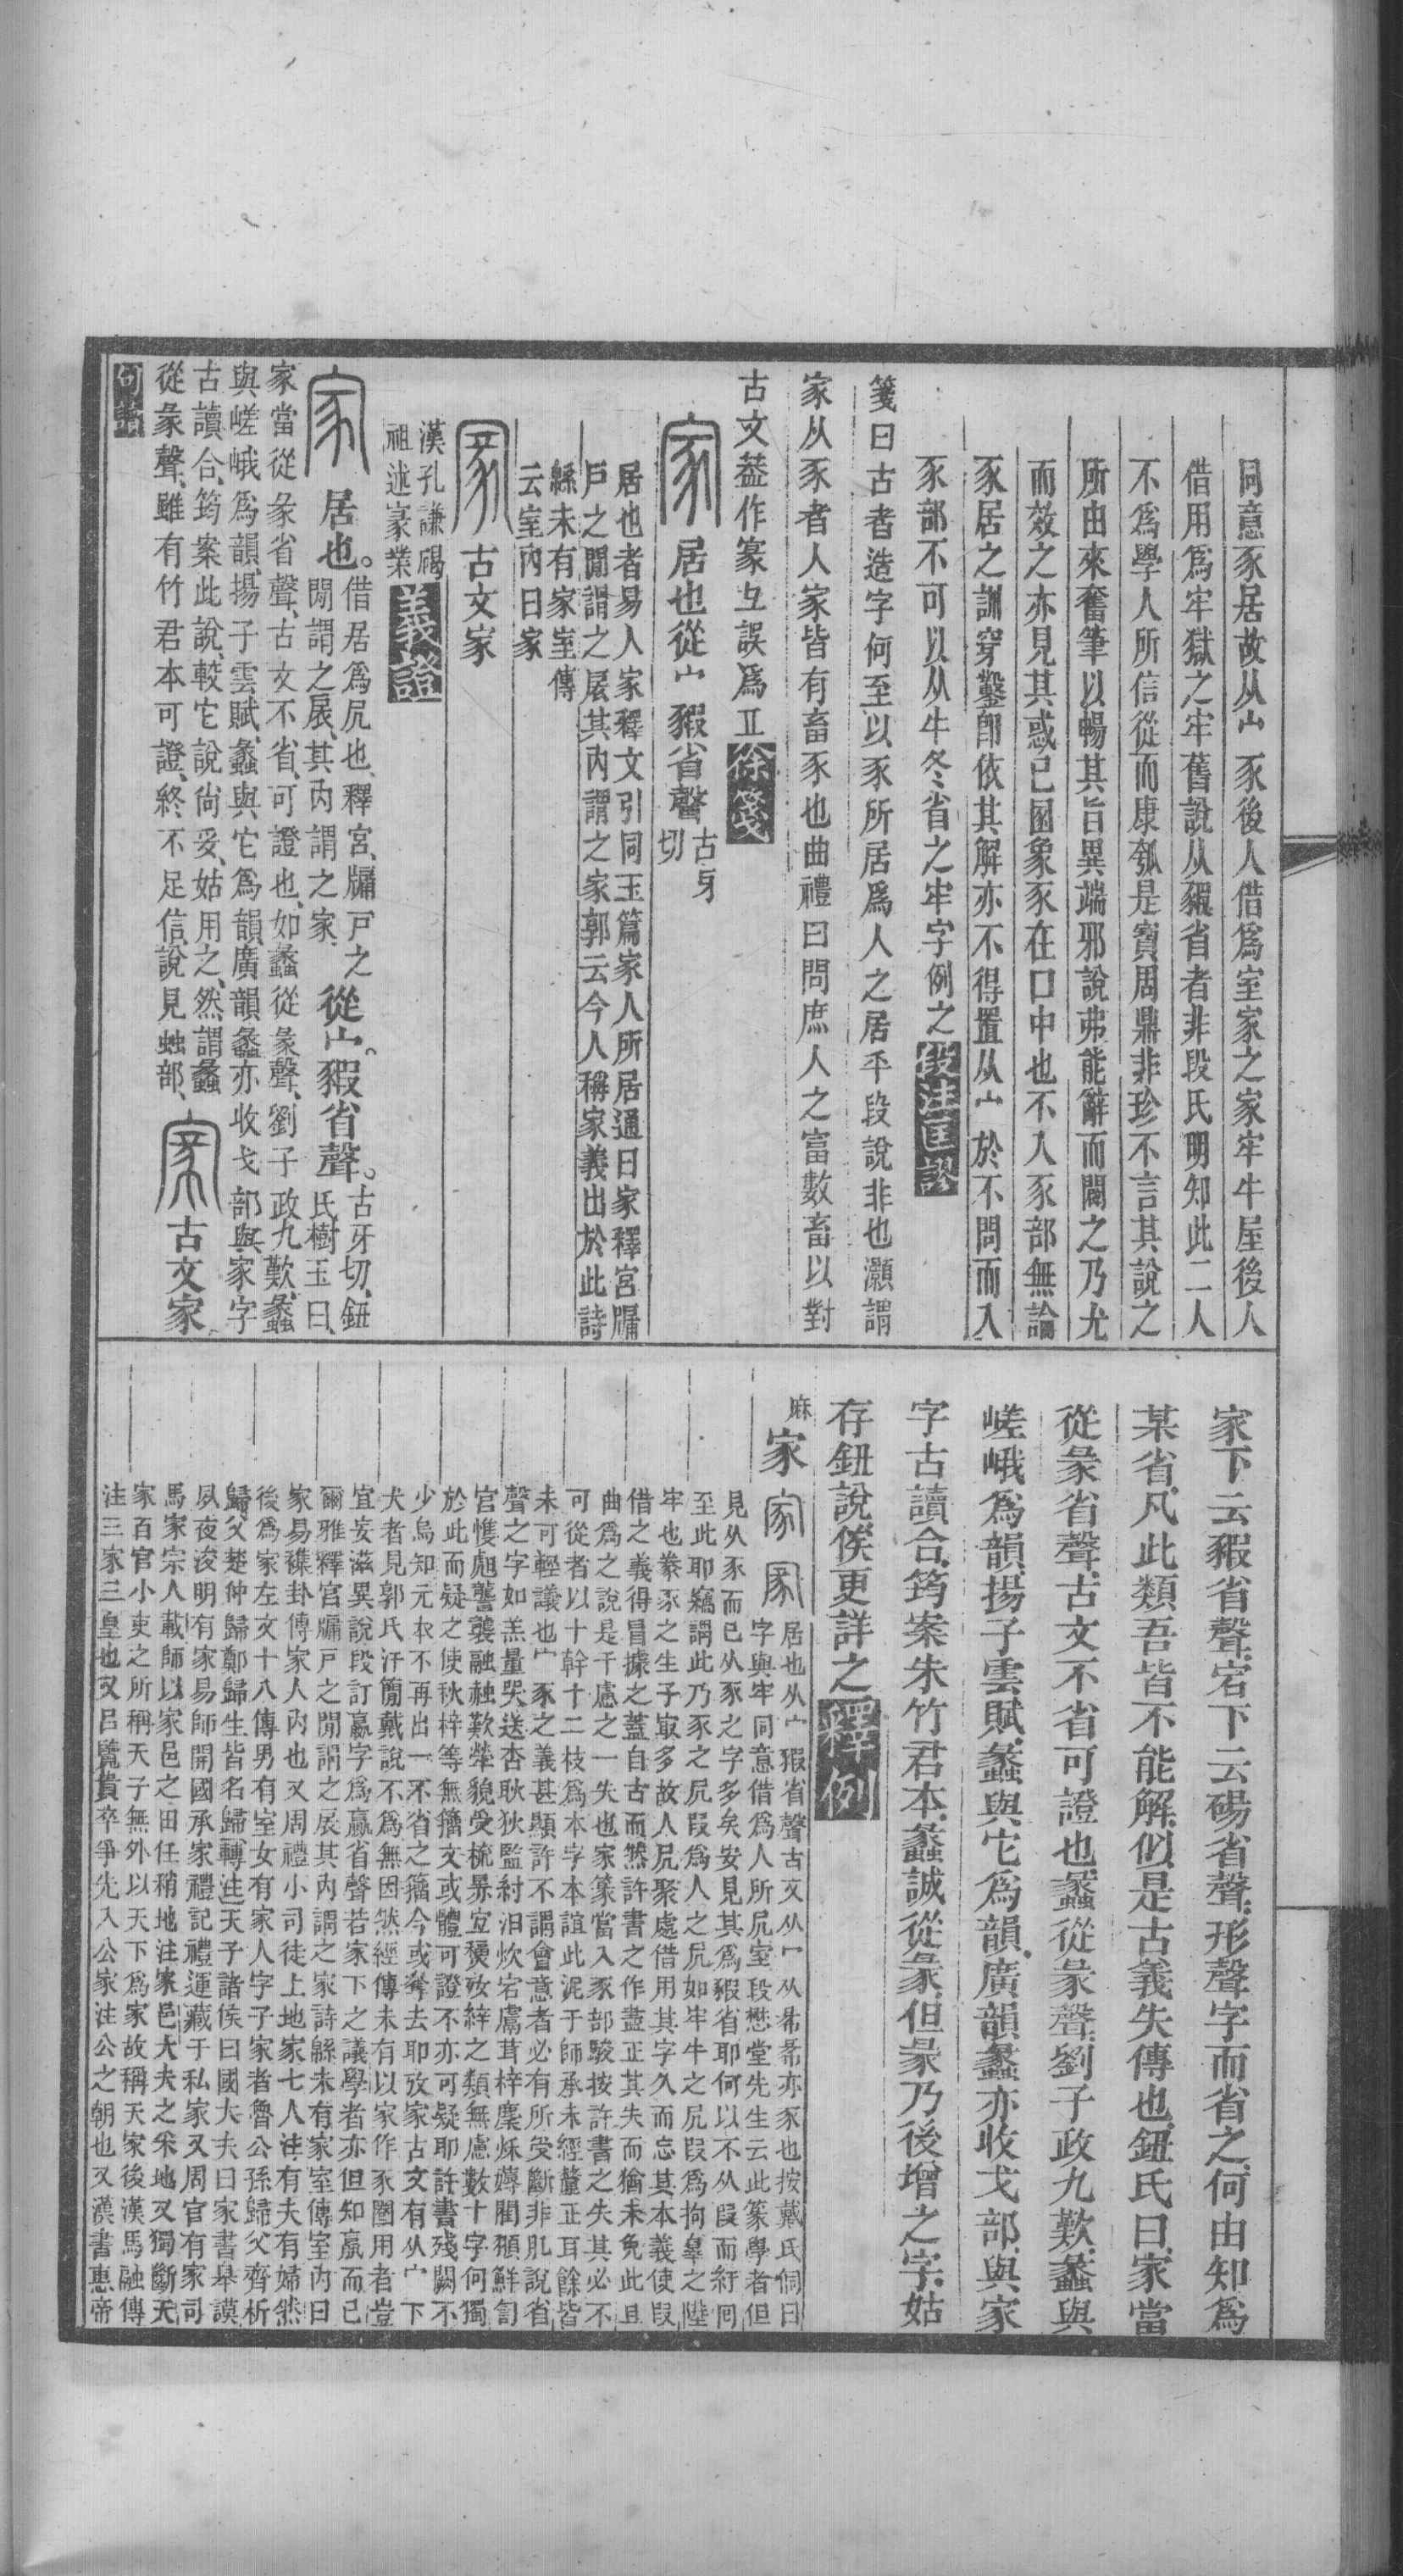 同意豕居故从宀豕後人借爲室家之家牢牛屋後人
借用爲牢獄之牢舊說从豭省者非段氏明知此二人
不爲學人所信從而康瓠是寶周鼎非珍不言其說之
所由來奮筆以暢其旨異端邪說弗能辭而闢之乃尤
而效之亦見其惑已圂象豕在口中也不入豕部無論
豕居之訓穿鑿卽依其解亦不得置从宀於不問而入
豕部不可以从牛冬省之牢字例之段注匡謬
箋曰古者造字何至以豕所居爲人之居乎段說非也灝謂
家从豕者人家皆有畜豕也曲禮曰問庶人之富數畜以對
古文葢作篆彑誤爲工徐箋
家居也從宀豭省聲古牙切
居也者易人家釋文引同玉篇家人所居通曰家釋宮牖
戶之閒謂之扆其內謂之家郭云今人稱家義出於此詩
緜未有家室傳
云室內曰家
古文家
漢孔謙碣
祖述家業義證
家居也。借居爲凥也、釋宮、牖戸之
閒謂之扆、其内謂之家、從宀。豭省聲。古牙切、鈕
氏樹玉曰、
家當從彖省聲、古文不省、可證也、如蠡從彖聲、劉子政九歎、蠡
與嵯峨爲韻、揚子雲賦、蠡與它爲韻、廣韻蠡亦收戈部、與家字
古讀合、筠案此說、較它說尙妥、姑用之、然謂蠡
從彖聲、雖有竹君本可證、終不足信、說見䖵部、古文家
句讀
家下云豭省聲、宕下云碭省聲、形聲字而省之、何由知爲
某省、凡此類吾皆不能解、似是古義失傳也、鈕氏曰、家當
從彖省聲、古文不省可證也、蠡從彖聲、劉子政九歎、蠡與
嵯峨爲韻、揚子雲賦、蠡與它爲韻、廣韻蠡亦收戈部、與家
字古讀合、筠案朱竹君本、蠡誠從彖、但彖乃後增之字、姑
存鈕說、俟更詳之釋例
麻家
居也从宀豭省聲古文从宀从㣇㣇亦豕也按戴氏侗曰
字與牢同意借爲人所凥室段懋堂先生云此篆學者但
見从豕而已从豕之字多矣安見其爲豭省耶何以不从叚而紆回
至此耶竊謂此乃豕之凥叚爲人之凥如牢牛之凥叚爲拘罪之陛
牢也豢豕之生子㝡多故人凥聚處借用其字久而忘其本義使叚
借之義得冒據之蓋自古而然許書之作盡正其失而猶未免此且
曲爲之說是千慮之一失也家篆當入豕部駿按許書之失其必不
可從者以十幹十二枝爲本字本誼此泥于師承未經釐正耳餘皆
未可輕議也宀豕之義甚顯許不謂會意者必有所受斷非肊說省
於此而疑之使秋梓等無籒文或體可證不亦可疑耶許書殘闕不
少烏知元本不再出一不省之籒今或奪去耶攷家古文有从宀下
犬者見郭氏汗簡戴說不爲無因然經傳未有以家作豕圈用者豈
宜妄滋異說段訂贏字爲𣎆省聲若家下之議學者亦但知贏而已
爾雅釋宮牖戶之閒謂之扆其內謂之家詩緜未有家室傳室內曰
家易襍卦傳家人內也又周禮小司徒上地家七人注有夫有婦然
後爲家左文十八傳男有室女有家人字子家者魯公孫歸父齊析
歸父楚仲歸鄭歸生皆名歸轉注天子諸侯曰國大夫曰家書皋謨
夙夜浚明有家易師開國承家禮記禮運藏于私家又周官有家司
馬家宗人載師以家邑之田任稍地注家邑大夫之采地又獨斷天
家百官小吏之所稱天子無外以天下爲家故稱天家後漢馬融傳
注三家三皇也又呂覽貴卒爭先入公家注公之朝也又漢書惠帝